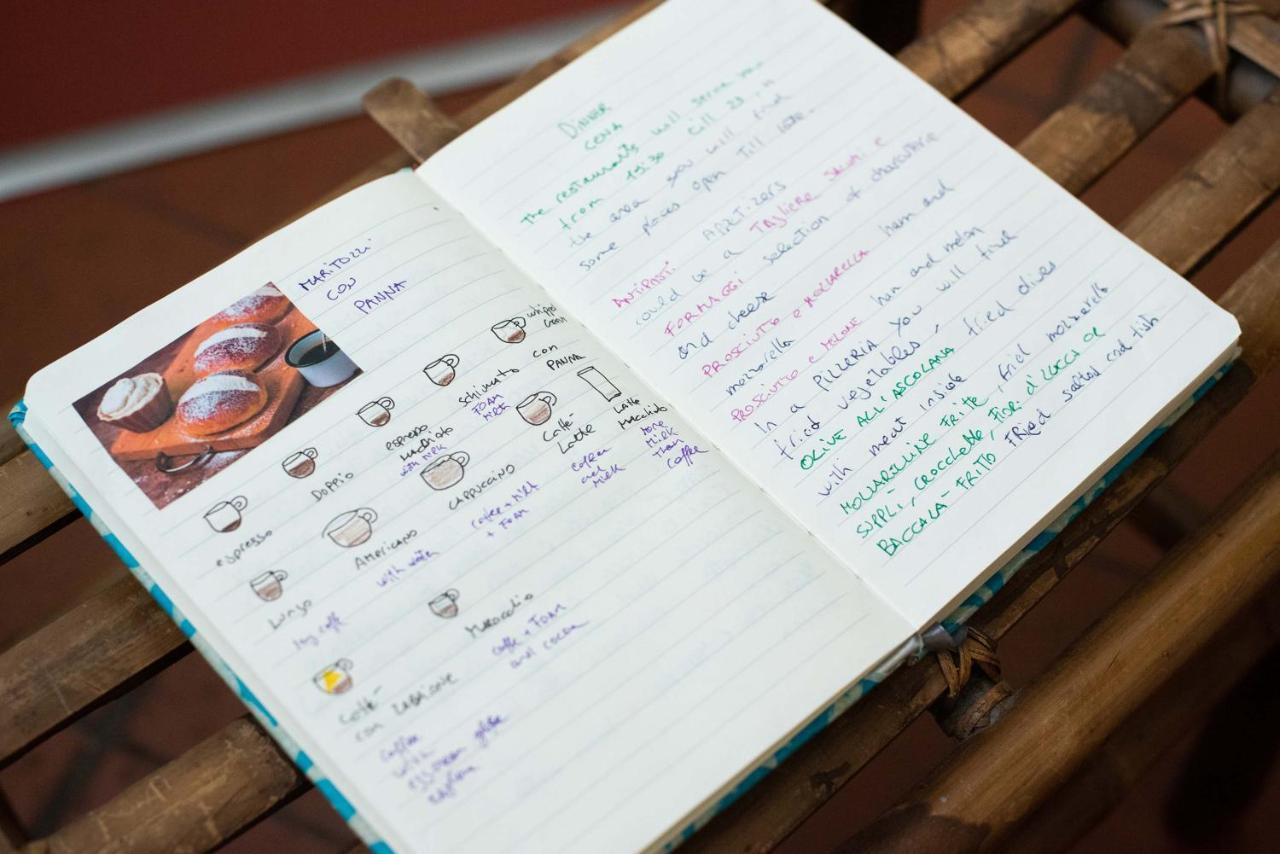 MARITOZZI
CON
PANNA
espresso
DOPPIO
espresso
MACCHIATO
with MILK
schiumato
FOAM
MILK
whipped
cream
con
PANNA
Lungo
AMERICANO
with water
CAPPUCCINO
coffee + MILK
+ FOAM
Caffè
Latte
coffee
and
MILK
LATTE
MACCHIATO
MORE
MILK
THAN
COFFEE
caffè
con ZABAIONE
coffee
with
coffe + FOAM
and cocoa
DINNER
CENA
The restaurants will serve
from 19:30 till 23, in
the area you will find
some places open till late.
APETIZERS
ANTIPASTI
could be a TAGLIERE SALUMI E
FORMAGGI selection of charcuterie
and cheese
PROSCIUTTO e MOZZARELLA ham and
mozzarella
PROSCIUTTO e MELONE ham and melon
In a PIZZERIA you will find
fried vegetables,
OLIVE ALL'ASCOLANA fried olives
with meat inside
MOZZARELLINE FRITTE, fried mozzarella
SUPPLÌ, CROCCHETTE, FIORI d'ZUCCA OR
BACCALÀ - FRITTO FRIED salted cod fish